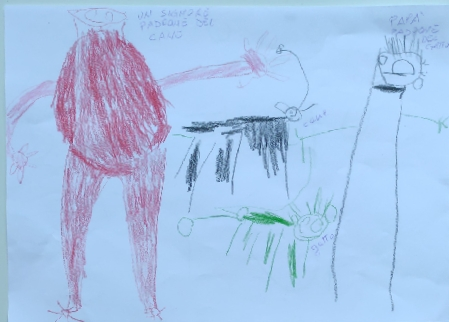 UN SIGNORE
PADRONE DEL
CANE
PAPA'
PADRONE
DEL
cane
gatto